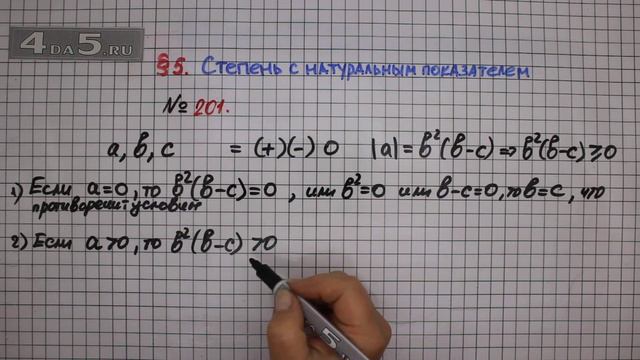 4DA5.RU
§5. Степень с натуральным показателем
№ 201.
a, b, c = (+)(-) 0 |a| = b²(b-c) ⇒ b²(b-c) ≥ 0
1) Если a=0, то b²(b-c)=0, или b²=0 или b-c=0, то b=c, что
противоречит условию
2) Если a>0, то b²(b-c) >0
4DA5